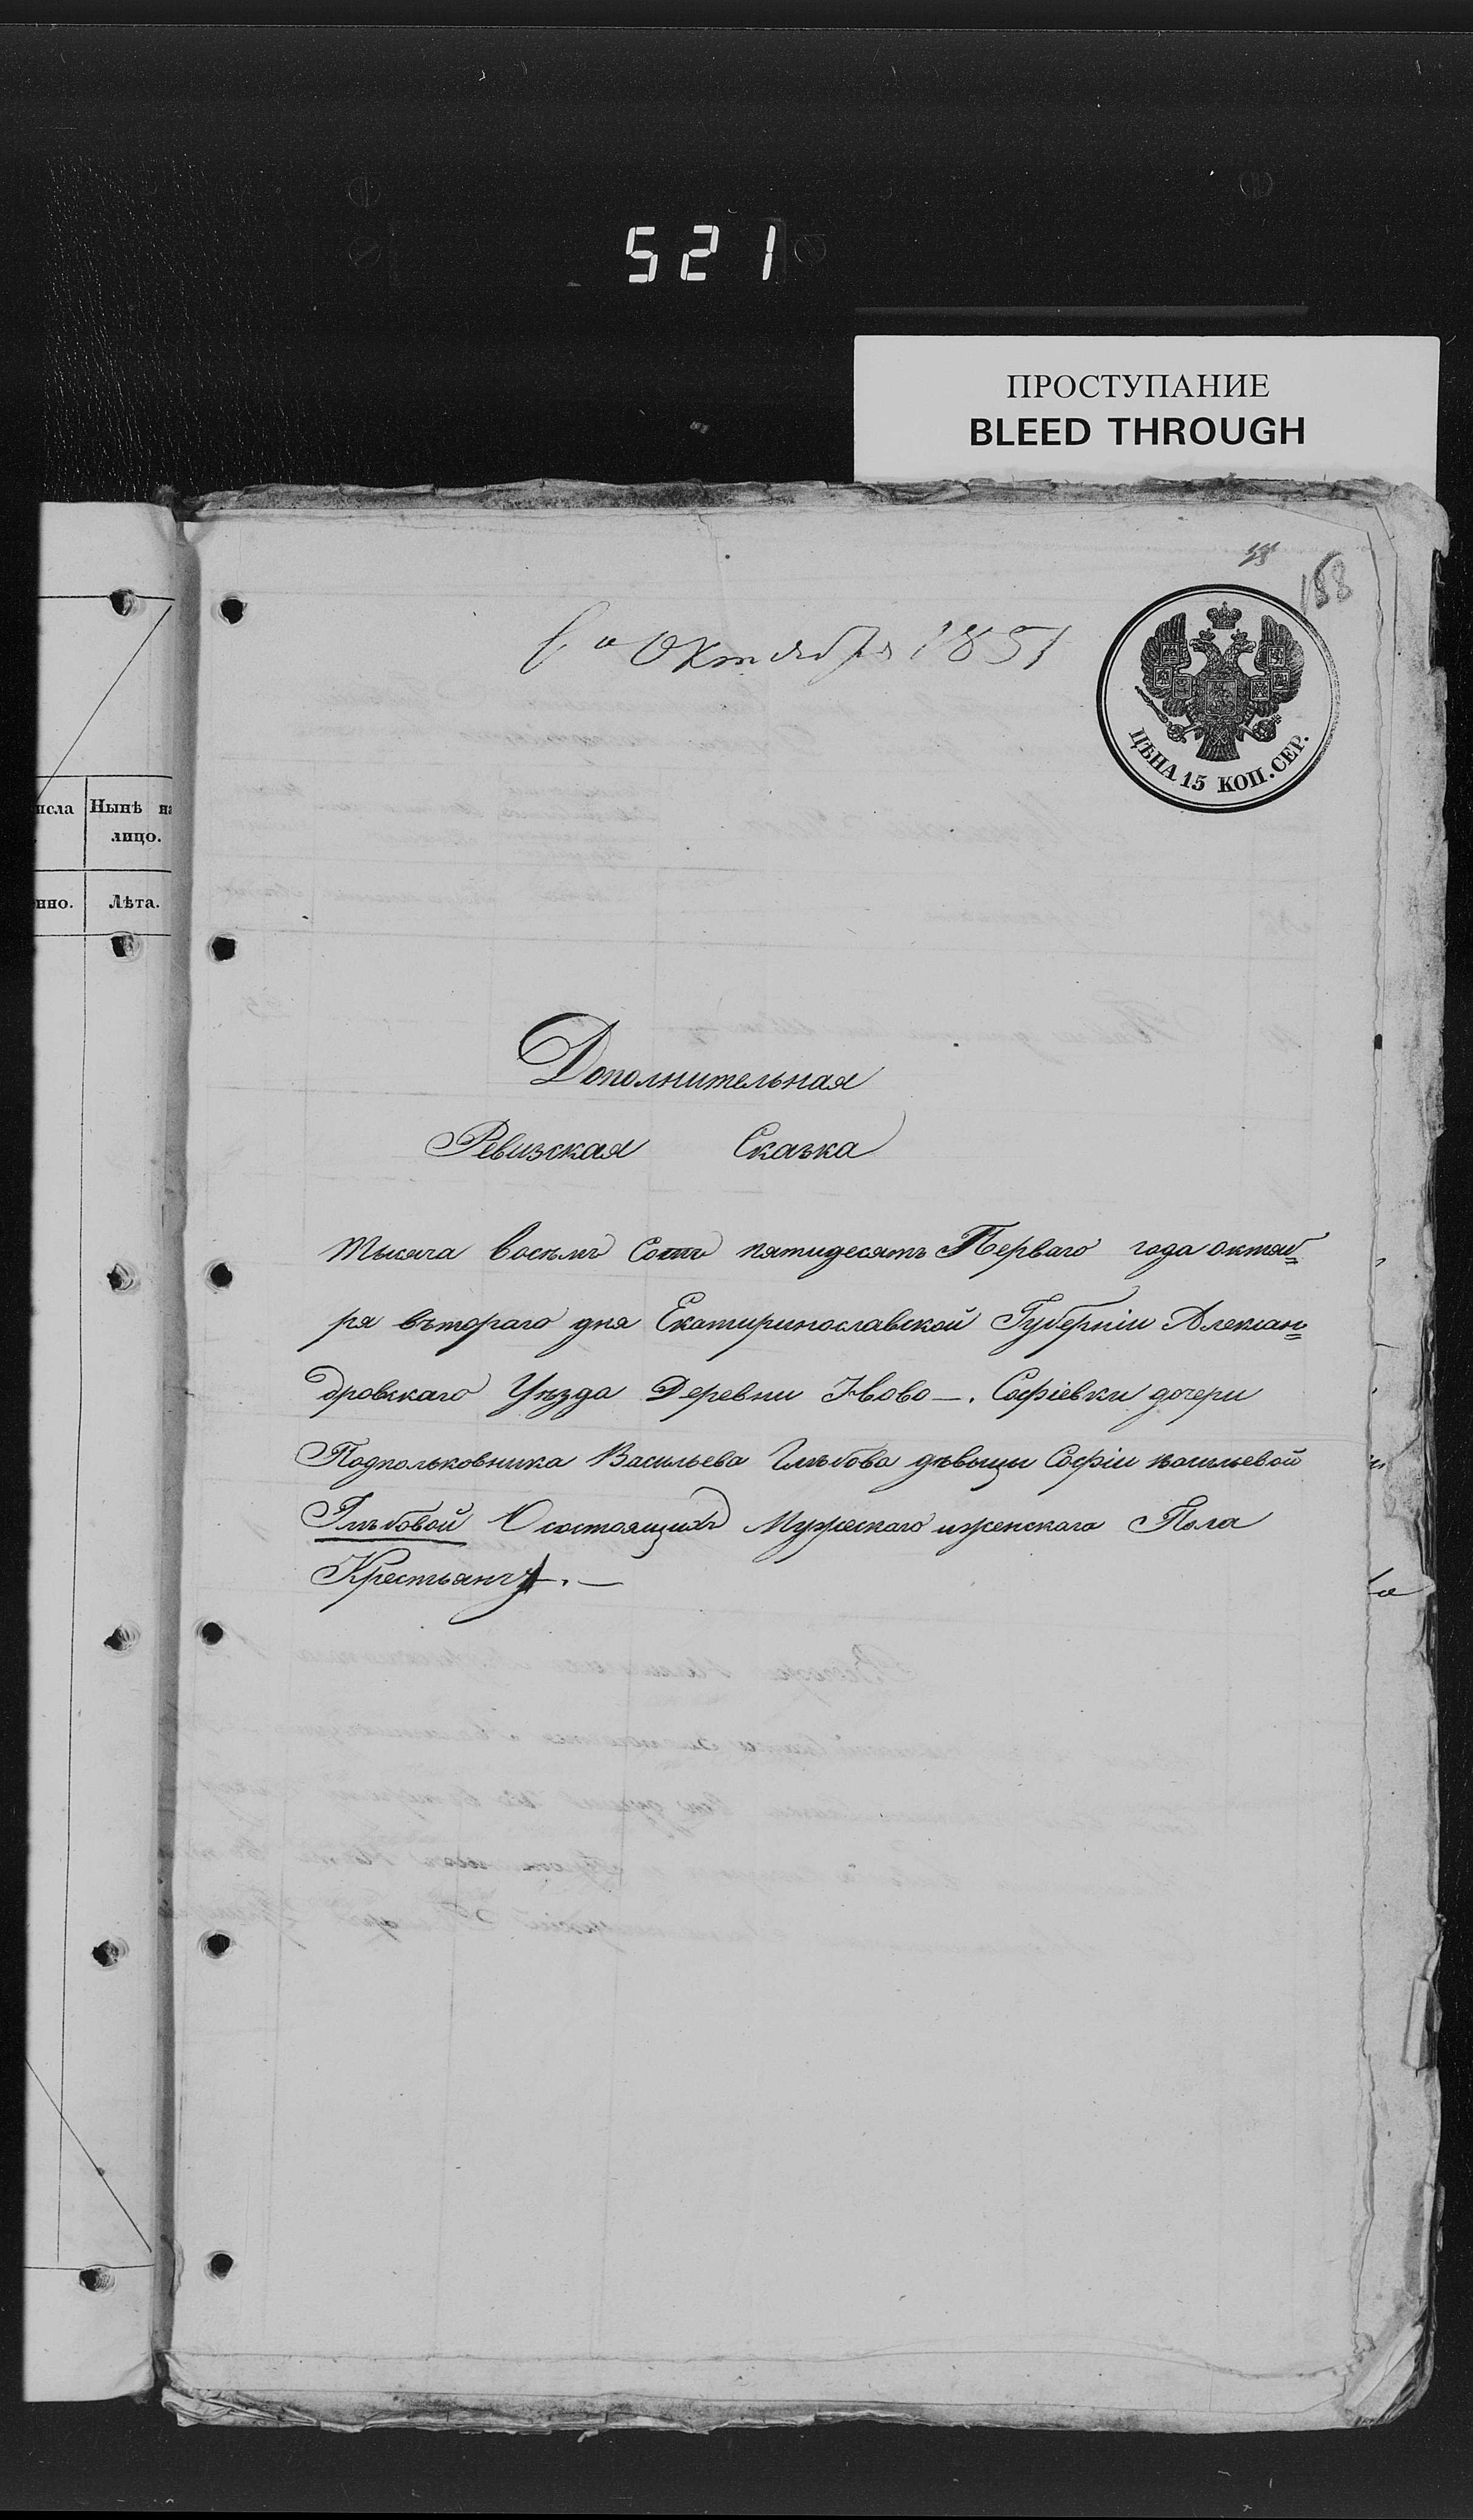 521
ПРОСТУПАНИЕ
BLEED THROUGH
188
6го Октября 1851
ЦѢНА 15 КОП. СЕР.
исла Нынѣ на
лицо.
нно. Лѣта.
Дополнительная
Ревизская Сказка
Тысяча восѣмъ Сотъ пятидесятъ Перваго года октяб=
ря втораго дня Екатиринославской Губерніи Алексан=
дровскаго Уѣзда Деревни Ново-. Софіевки дочери
Подпольковника Васильева Глѣбова дѣвицы Софіи васильевой
Глѣбовой О состоящихъ Мужескаго и женскаго Пола
Крестьянъ.